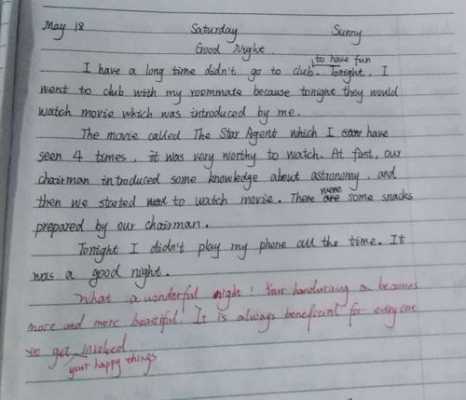 May 18 Saturday Sunny
Good Night
to have fun
I have a long time didn't go to club. Tonight, I
went to club with my roommate because tonight they would
watch movie which was introduced by me.
The movie called The Star Agent which I have
seen 4 times, it was very worthy to watch. At first, our
chairman introduced some knowledge about astronomy, and
then we started to watch movie. There were some snacks
prepared by our chairman.
Tonight I didn't play my phone all the time. It
was a good night.
What a wonderful night! Your handwriting becomes
more and more beautiful. It is always beneficial for everyone
to get involved
your happy things